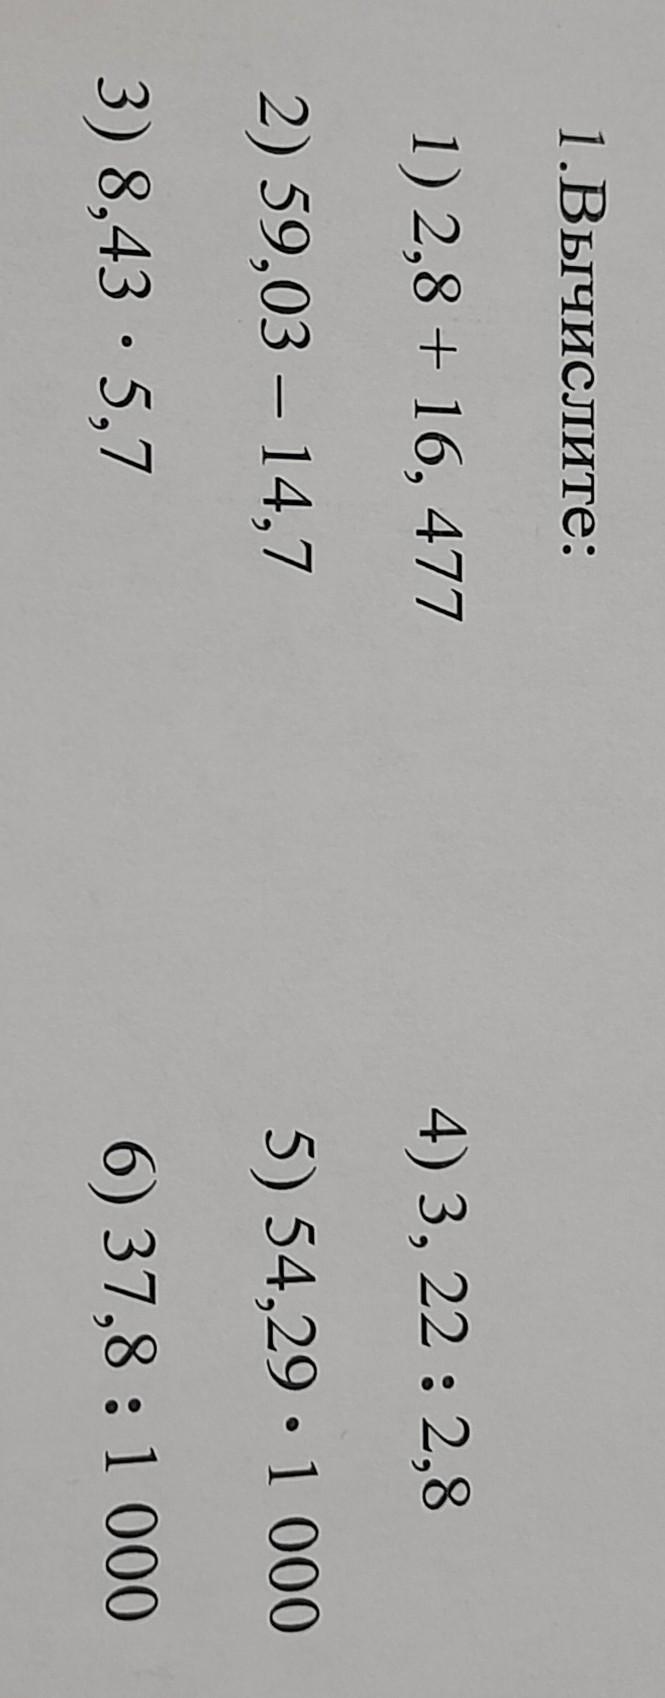 1.Вычислите:
1) 2,8 + 16, 477
4) 3, 22 : 2,8
2) 59,03 – 14,7
5) 54,29 · 1 000
3) 8,43 · 5,7
6) 37,8 : 1 000